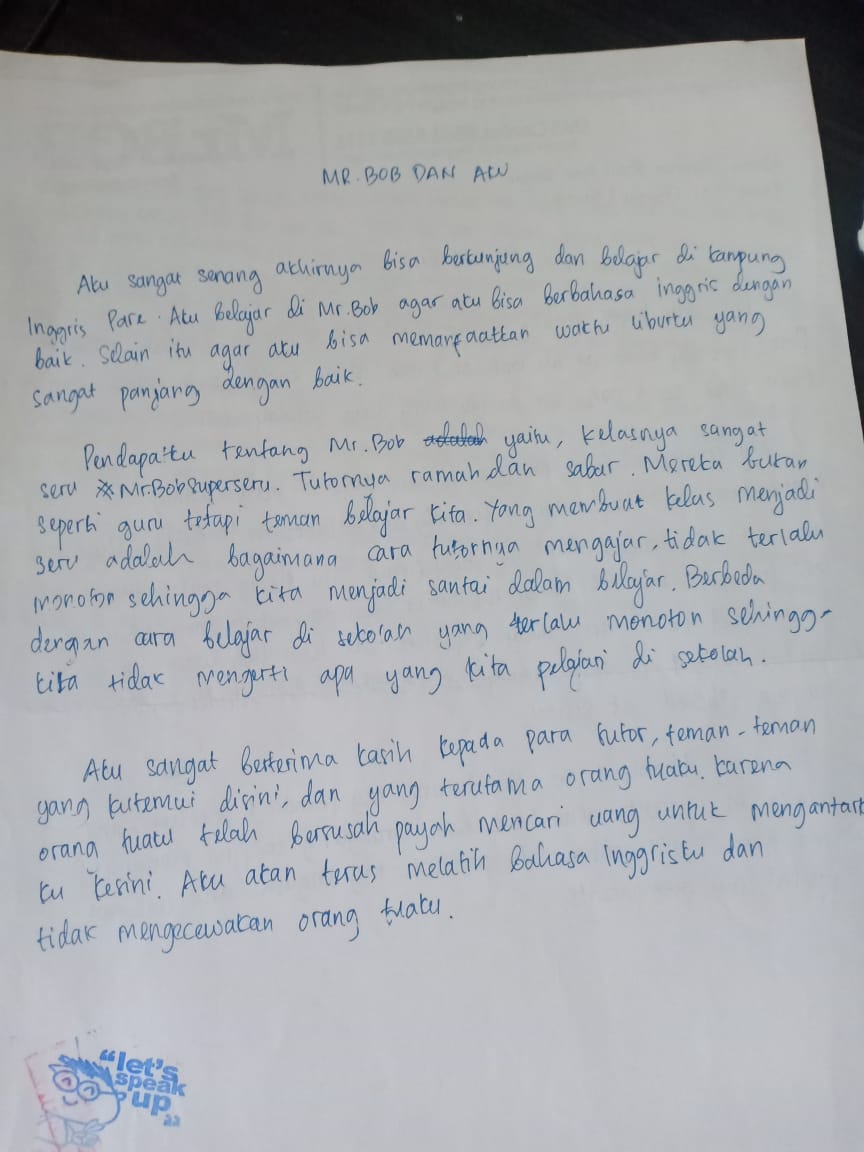 MR. BOB DAN AKU
Aku sangat senang akhirnya bisa berkunjung dan belajar di kampung
Inggris Pare. Aku belajar di Mr.Bob agar aku bisa berbahasa inggris dengan
baik. Selain itu agar aku bisa memanfaatkan waktu liburku yang
sangat panjang dengan baik.
Pendapatku tentang Mr.Bob adalah yaitu, kelasnya sangat
seru Mr.Bob superseru. Tutornya ramah dan sabar. Mereka bukan
seperti guru tetapi teman belajar kita. Yang membuat kelas menjadi
seru adalah bagaimana cara tutornya mengajar, tidak terlalu
monoton sehingga kita menjadi santai dalam belajar. Berbeda
dengan cara belajar di sekolah yang terlalu monoton sehingg
kita tidak mengerti apa yang kita pelajari di sekolah.
Aku sangat berterima kasih kepada para tutor, teman-teman
yang kutemui disini, dan yang terutama orang tuaku. karena
orang tuaku telah bersusah payah mencari uang untuk mengantark
ku kesini. Aku akan terus melatih bahasa Inggrisku dan
tidak mengecewakan orang tuaku.
"let's
speak
up"